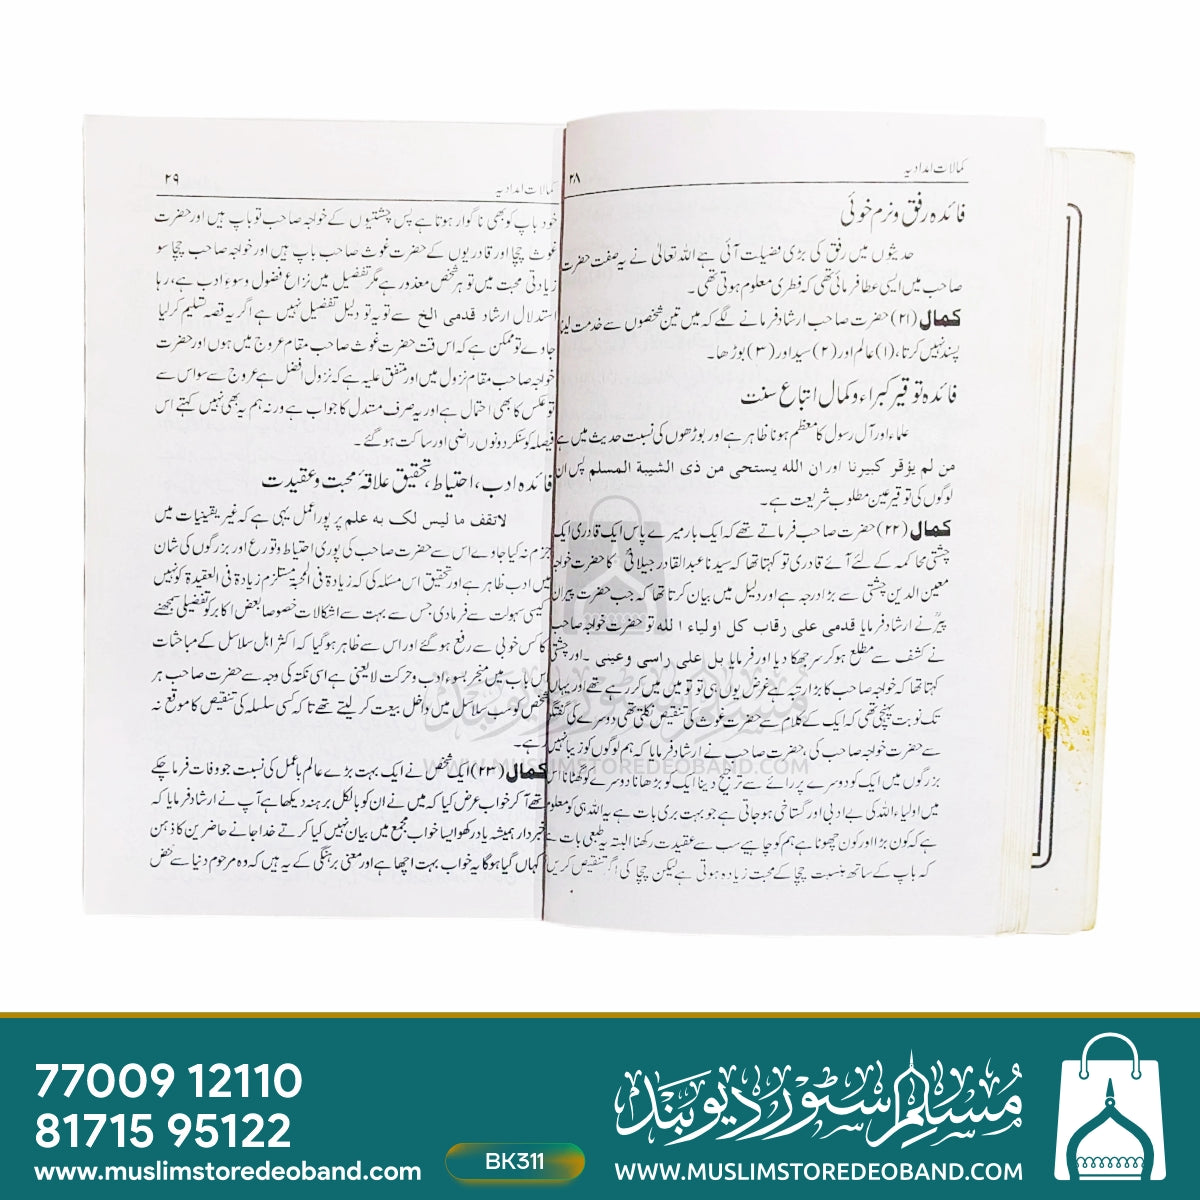 کمالات امدادیہ
۲۸
فائدہ رفق و نرم خوئی
حدیثوں میں رفق کی بڑی فضیلت آئی ہے اللہ تعالیٰ نے یہ صفت حضرت
صاحب میں ایسی عطا فرمائی تھی کہ فطری معلوم ہوتی تھی۔
کمال (۲۱) حضرت صاحب ارشاد فرمانے لگے کہ میں تین شخصوں سے خدمت لینا
پسند نہیں کرتا، (۱) عالم اور (۲) سید اور (۳) بوڑھا۔
فائدہ توقیر کبراء و کمال اتباع سنت
علماء اور آل رسول کا معظم ہونا ظاہر ہے اور بوڑھوں کی نسبت حدیث میں ہے
من لم يؤقر كبيرنا اور ان الله يستحى من ذى الشيبة المسلم پس ان
لوگوں کی توقیر عین مطلوب شریعت ہے۔
کمال (۲۲) حضرت صاحب فرماتے تھے کہ ایک بار میرے پاس ایک قادری ایک
چشتی محاکمہ کے لئے آئے قادری تو کہتا تھا کہ سیدنا عبدالقادر جیلانیؒ کا حضرت خواجہ
معین الدین چشتی سے بڑا درجہ ہے اور دلیل میں بیان کرتا تھا کہ جب حضرت پیران
پیرؒ نے ارشاد فرمایا قدمى على رقاب كل اولياء الله تو حضرت خواجہ صاحب
نے کشف سے مطلع ہو کر سر جھکا دیا اور فرمایا بل على راسى وعينى اور چشتی
کہتا تھا کہ خواجہ صاحب کا بڑا رتبہ ہے غرض یوں ہی تو تو میں میں کر رہے تھے اور یہاں
تک نوبت پہنچی تھی کہ ایک کے کلام سے حضرت غوث کی تنقیص نکلتی تھی دوسرے کی گفتگو
سے حضرت خواجہ صاحب کی، حضرت صاحب نے ارشاد فرمایا کہ ہم لوگوں کو زیبا نہیں
بزرگوں میں ایک کو دوسرے پر رائے سے ترجیح دینا ایک کو بڑھانا دوسرے کو گھٹانا اس
میں اولیاء اللہ کی بے ادبی اور گستاخی ہو جاتی ہے جو بہت بری بات ہے یہ اللہ ہی کو معلوم
ہے کہ کون بڑا اور کون چھوٹا ہے ہم کو چاہیے سب سے عقیدت رکھنا البتہ یہ طبعی بات ہے
کہ باپ کے ساتھ بہ نسبت چچا کے محبت زیادہ ہوتی ہے لیکن چچا کی اگر تنقیص کریں
کمالات امدادیہ
۲۹
خود باپ کو بھی ناگوار ہوتا ہے پس چشتیوں کے خواجہ صاحب تو باپ ہیں اور حضرت
غوث چچا اور قادریوں کے حضرت غوث صاحب باپ ہیں اور خواجہ صاحب چچا سو
زیادتی محبت میں تو ہر شخص معذور ہے مگر تفصیل میں نزاع فضول و سوء ادب ہے، رہا
استدلال ارشاد قدمی الخ سے تو یہ تو دلیل تفصیل نہیں ہے اگر یہ قصہ تسلیم کر لیا
جاوے تو ممکن ہے کہ اس وقت حضرت غوث صاحب مقام عروج میں ہوں اور حضرت
خواجہ صاحب مقام نزول میں اور متفق علیہ ہے کہ نزول افضل ہے عروج سے سو اس سے
تو عکس کا بھی احتمال ہے اور یہ صرف مستدل کا جواب ہے ورنہ ہم یہ بھی نہیں کہتے اس
فیصلہ کو سنکر دونوں راضی اور ساکت ہو گئے۔
فائدہ ادب، احتیاط، تحقیق علاقۂ محبت و عقیدت
لاتقف ما ليس لك به علم پر پورا عمل یہی ہے کہ غیر یقینیات میں
جزم نہ کیا جاوے اس سے حضرت صاحب کی پوری احتیاط و تورع اور بزرگوں کی شان
میں ادب ظاہر ہے اور تحقیق اس مسئلہ کی کہ زیادة فی المحبة مستلزم زیادة فی العقیدة کو نہیں
کیسی سہولت سے فرما دی جس سے بہت سے اشکالات خصوصا بعض اکابر کو تفضیلی سمجھنے
کا کس خوبی سے رفع ہو گئے اور اس سے ظاہر ہو گیا کہ اکثر اہل سلاسل کے مباحثات
اس باب میں منجر بسوء ادب و حرکت لا یعنی ہے اسی نکتہ کی وجہ سے حضرت صاحب ہر
شخص کو سب سلاسل میں داخل بیعت کر لیتے تھے تا کہ کسی سلسلہ کی تنقیص کا موقع نہ
رہے۔
کمال (۲۳) ایک شخص نے ایک بہت بڑے عالم باعمل کی نسبت جو وفات فرما چکے
تھے آ کر خواب عرض کیا کہ میں نے ان کو بالکل برہنہ دیکھا ہے آپ نے ارشاد فرمایا کہ
خبردار ہمیشہ یاد رکھو ایسا خواب مجمع میں بیان نہیں کیا کرتے خدا جانے حاضرین کا ذہن
کہاں گیا ہوگا یہ خواب بہت اچھا ہے اور معنی برہنگی کے یہ ہیں کہ وہ مرحوم دنیا سے محض
مسلم سٹور دیوبند
WWW.MUSLIMSTOREDEOBAND.COM
77009 12110
81715 95122
www.muslimstoredeoband.com
BK311
مسلم سٹور دیوبند
WWW.MUSLIMSTOREDEOBAND.COM